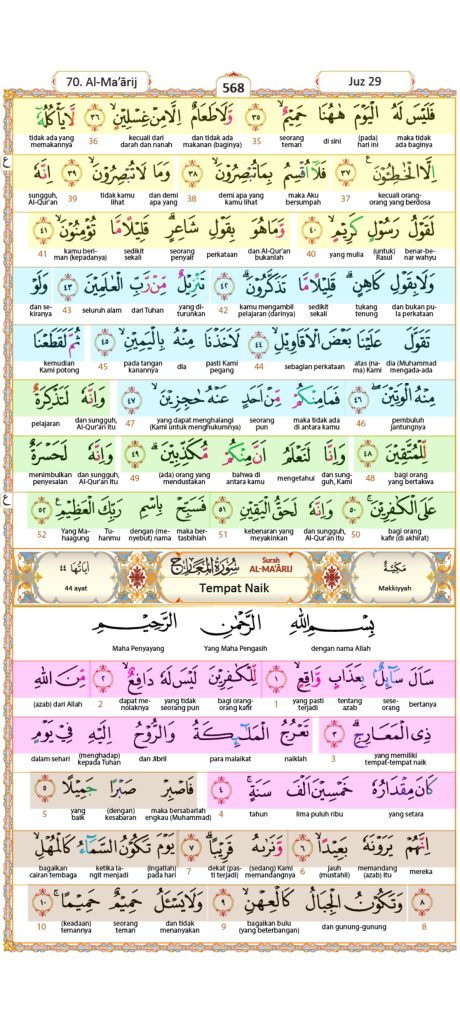 70. Al-Ma’ārij
568
Juz 29
فَلَيْسَ لَهُ الْيَوْمَ هٰهُنَا حَمِيْمٌۙ ٣٥ وَّلَا طَعَامٌ اِلَّا مِنْ غِسْلِيْنٍۙ ٣٦ لَّا يَأْكُلُهٗٓ
maka tidak ada baginya (pada) hari ini di sini seorang teman 35 dan tidak ada makanan (baginya) kecuali dari darah dan nanah 36 tidak ada yang memakannya
اِلَّا الْخَاطِـُٔوْنَ ࣖ ٣٧ فَلَآ اُقْسِمُ بِمَا تُبْصِرُوْنَۙ ٣٨ وَمَا لَا تُبْصِرُوْنَۙ ٣٩ اِنَّهٗ
kecuali orang-orang yang berdosa 37 maka Aku bersumpah demi apa yang kamu lihat 38 dan demi apa yang tidak kamu lihat 39 sungguh, Al-Qur’an itu
لَقَوْلُ رَسُوْلٍ كَرِيْمٍۙ ٤٠ وَّمَا هُوَ بِقَوْلِ شَاعِرٍۗ قَلِيْلًا مَّا تُؤْمِنُوْنَۙ ٤١
benar-benar wahyu (untuk) Rasul yang mulia 40 dan Al-Qur’an bukanlah perkataan seorang penyair sedikit sekali kamu beriman (kepadanya) 41
وَلَا بِقَوْلِ كَاهِنٍۗ قَلِيْلًا مَّا تَذَكَّرُوْنَۗ ٤٢ تَنْزِيْلٌ مِّنْ رَّبِّ الْعٰلَمِيْنَ ٤٣ وَلَوْ
dan bukan pula perkataan tukang tenung sedikit sekali kamu mengambil pelajaran (darinya) 42 yang diturunkan dari Tuhan seluruh alam 43 dan sekiranya
تَقَوَّلَ عَلَيْنَا بَعْضَ الْاَقَاوِيْلِۙ ٤٤ لَاَخَذْنَا مِنْهُ بِالْيَمِيْنِۙ ٤٥ ثُمَّ لَقَطَعْنَا
dia (Muhammad) mengada-ada atas (nama) Kami sebagian perkataan 44 pasti Kami pegang dia pada tangan kanannya 45 kemudian Kami potong
مِنْهُ الْوَتِيْنَۖ ٤٦ فَمَا مِنْكُمْ مِّنْ اَحَدٍ عَنْهُ حٰجِزِيْنَۙ ٤٧ وَاِنَّهٗ لَتَذْكِرَةٌ
pembuluh jantungnya 46 maka tidak ada di antara kamu seorang pun yang dapat menghalangi (Kami untuk menghukumnya) 47 dan sungguh, Al-Qur’an itu pelajaran
لِّلْمُتَّقِيْنَ ٤٨ وَاِنَّا لَنَعْلَمُ اَنَّ مِنْكُمْ مُّكَذِّبِيْنَۗ ٤٩ وَاِنَّهٗ لَحَسْرَةٌ
bagi orang yang bertakwa 48 dan sungguh, Kami mengetahui bahwa di antara kamu (ada) orang yang mendustakan 49 dan sungguh, Al-Qur’an itu menimbulkan penyesalan
عَلَى الْكٰفِرِيْنَۚ ٥٠ وَاِنَّهٗ لَحَقُّ الْيَقِيْنِ ٥١ فَسَبِّحْ بِاسْمِ رَبِّكَ الْعَظِيْمِ ࣖ ٥٢
bagi orang kafir (di akhirat) 50 dan sungguh, Al-Qur’an itu kebenaran yang meyakinkan 51 maka bertasbihlah dengan (menyebut) nama Tuhanmu Yang Mahaagung 52
مَكِّيَّةٌ
Makkiyyah
سُوْرَةُ الْمَعَارِجِ
Surah AL-MA’ĀRIJ
Tempat Naik
اٰيَاتُهَا ٤٤
44 ayat
بِسْمِ اللّٰهِ الرَّحْمٰنِ الرَّحِيْمِ
dengan nama Allah Yang Maha Pengasih Maha Penyayang
سَاَلَ سَاۤىِٕلٌۢ بِعَذَابٍ وَّاقِعٍۙ ١ لِّلْكٰفِرِيْنَ لَيْسَ لَهٗ دَافِعٌۙ ٢ مِّنَ اللّٰهِ
bertanya seseorang tentang azab yang pasti terjadi 1 bagi orang-orang kafir yang tidak seorang pun dapat menolaknya 2 (azab) dari Allah
ذِى الْمَعَارِجِۗ ٣ تَعْرُجُ الْمَلٰۤىِٕكَةُ وَالرُّوْحُ اِلَيْهِ فِيْ يَوْمٍ
yang memiliki tempat-tempat naik 3 naiklah para malaikat dan Jibril (menghadap) kepada Tuhan dalam sehari
كَانَ مِقْدَارُهٗ خَمْسِيْنَ اَلْفَ سَنَةٍۚ ٤ فَاصْبِرْ صَبْرًا جَمِيْلًا ٥
yang setara lima puluh ribu tahun 4 maka bersabarlah engkau (Muhammad) (dengan) kesabaran yang baik 5
اِنَّهُمْ يَرَوْنَهٗ بَعِيْدًاۙ ٦ وَّنَرٰىهُ قَرِيْبًاۗ ٧ يَوْمَ تَكُوْنُ السَّمَاۤءُ كَالْمُهْلِۙ
mereka memandang (azab) itu jauh (mustahil) 6 (sedang) Kami memandangnya dekat (pasti terjadi) 7 (ingatlah) pada hari ketika langit menjadi bagaikan cairan tembaga
٨ وَتَكُوْنُ الْجِبَالُ كَالْعِهْنِۙ ٩ وَلَا يَسْـَٔلُ حَمِيْمٌ حَمِيْمًاۚ ١٠
8 dan gunung-gunung bagaikan bulu (yang beterbangan) 9 dan tidak menanyakan seorang teman (keadaan) temannya 10